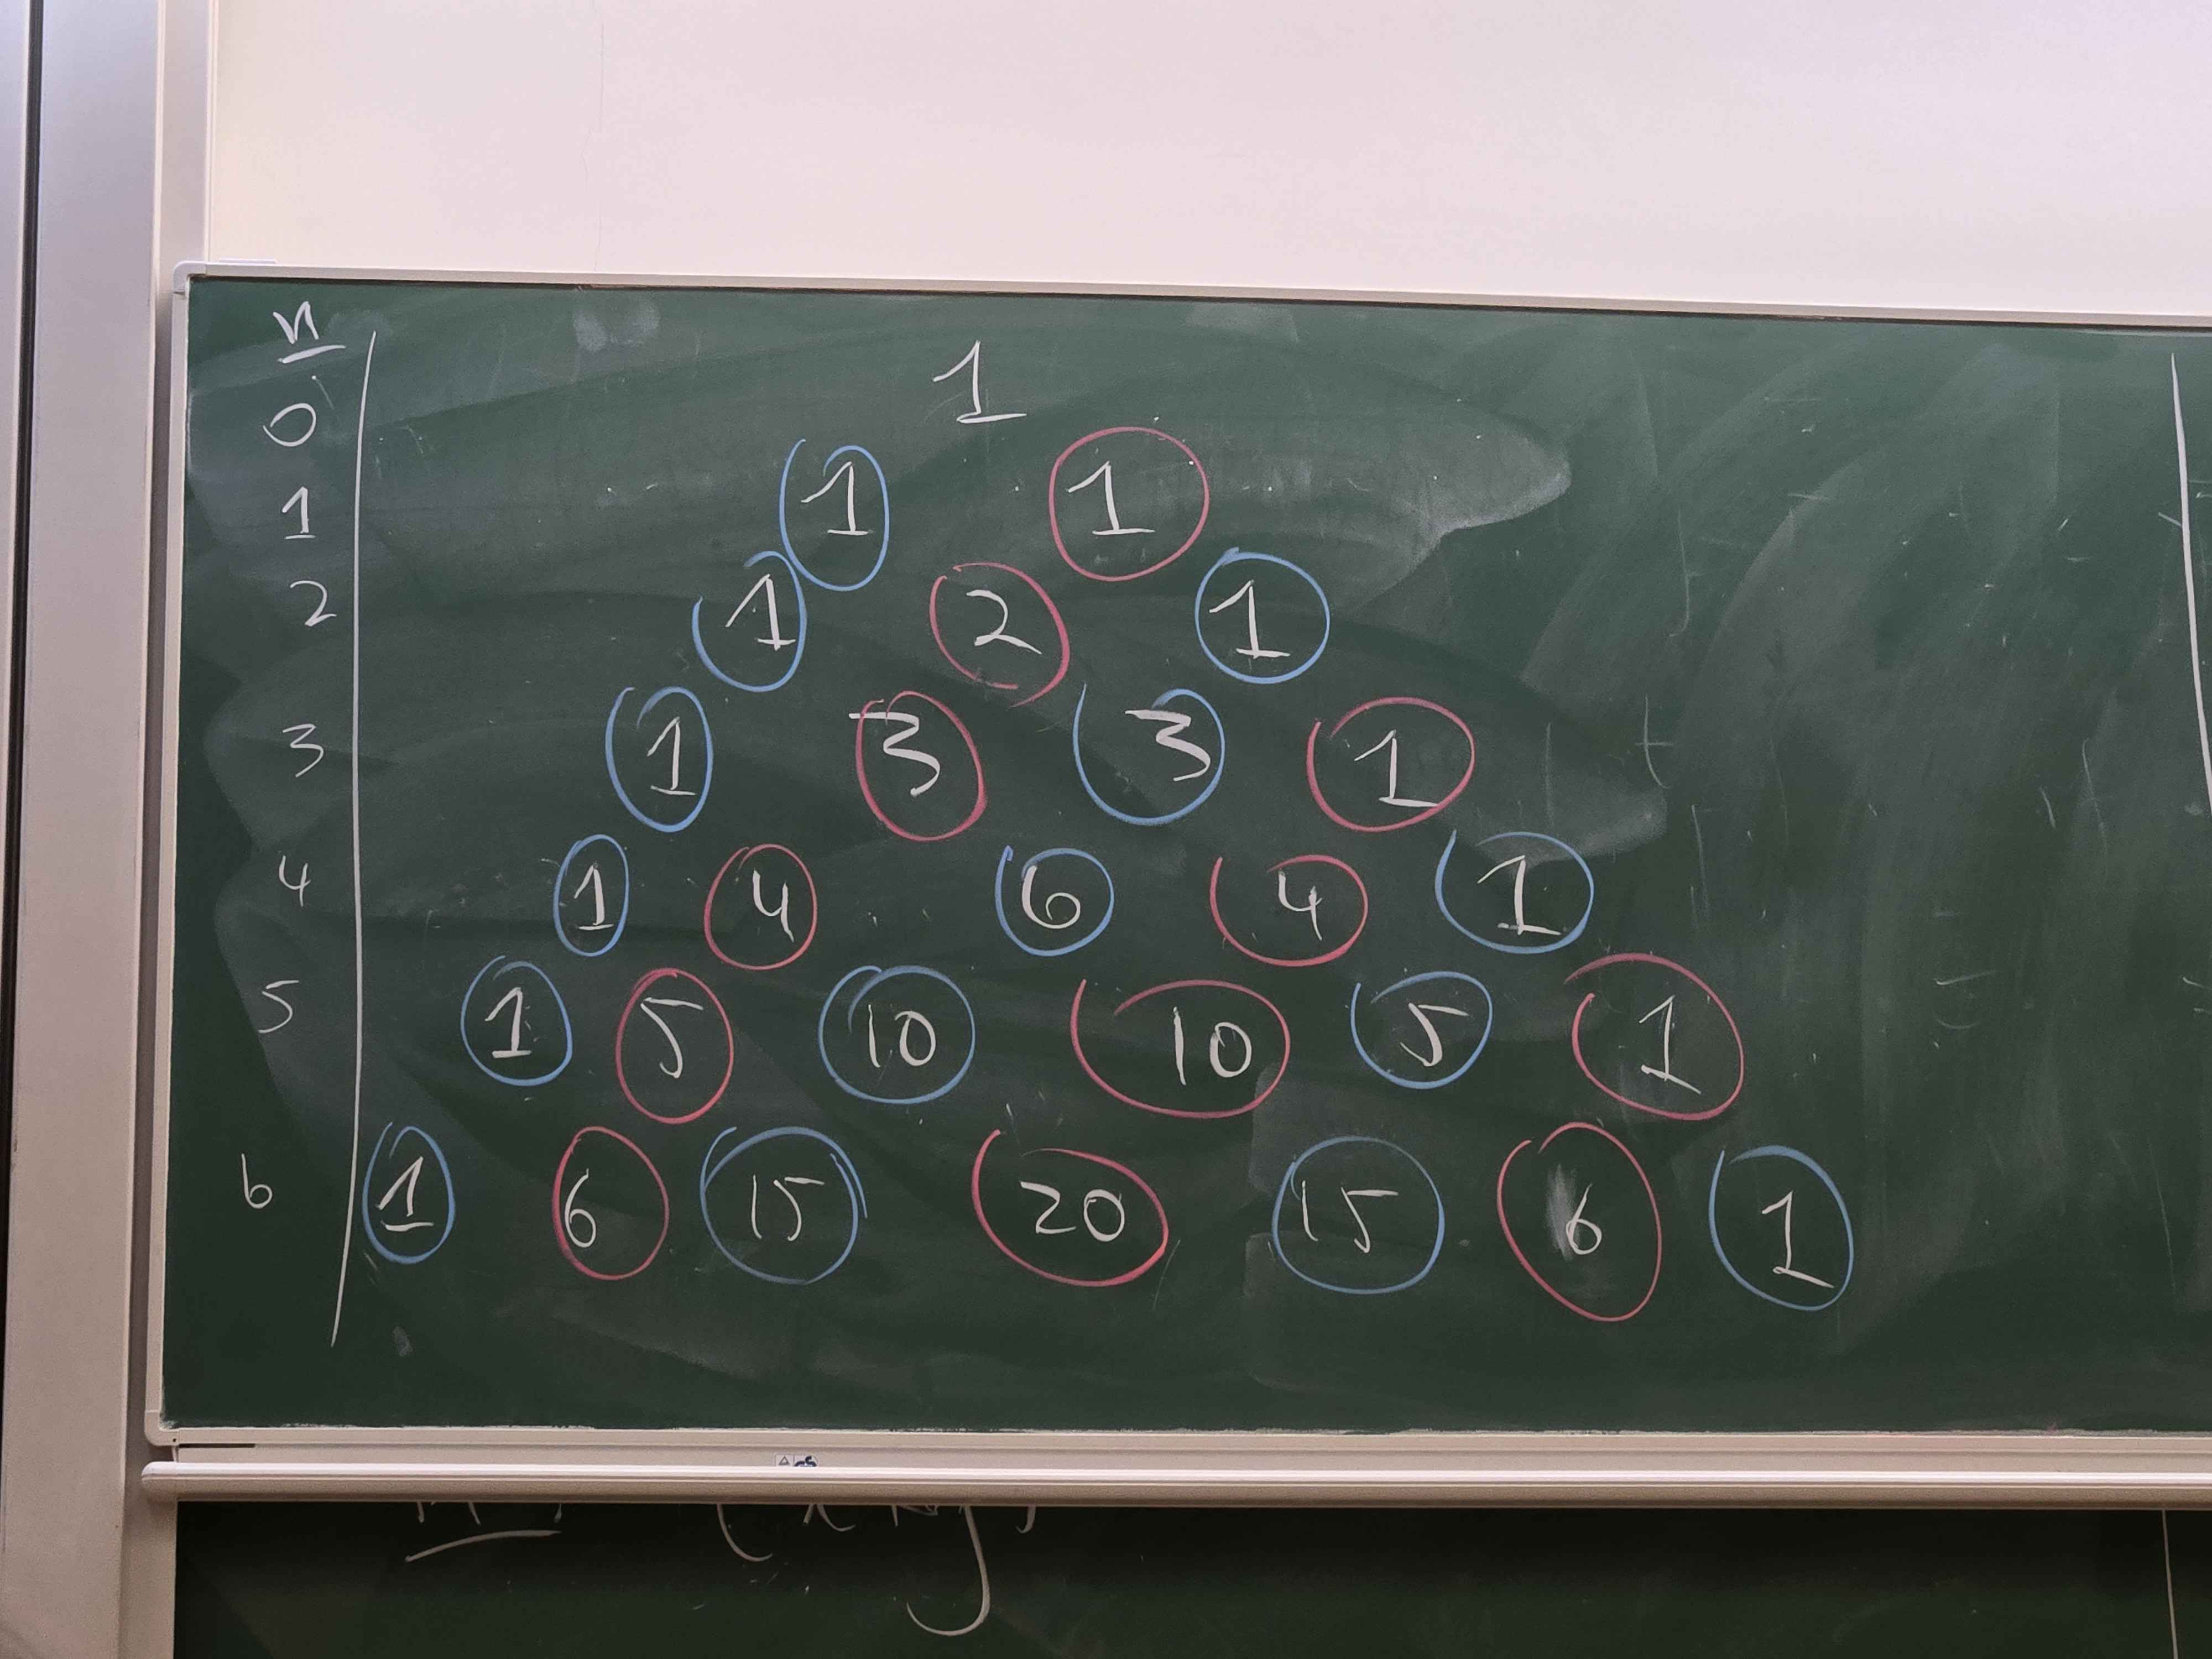 n
0 1
1 1 1
2 1 2 1
3 1 3 3 1
4 1 4 6 4 1
5 1 5 10 10 5 1
6 1 6 15 20 15 6 1